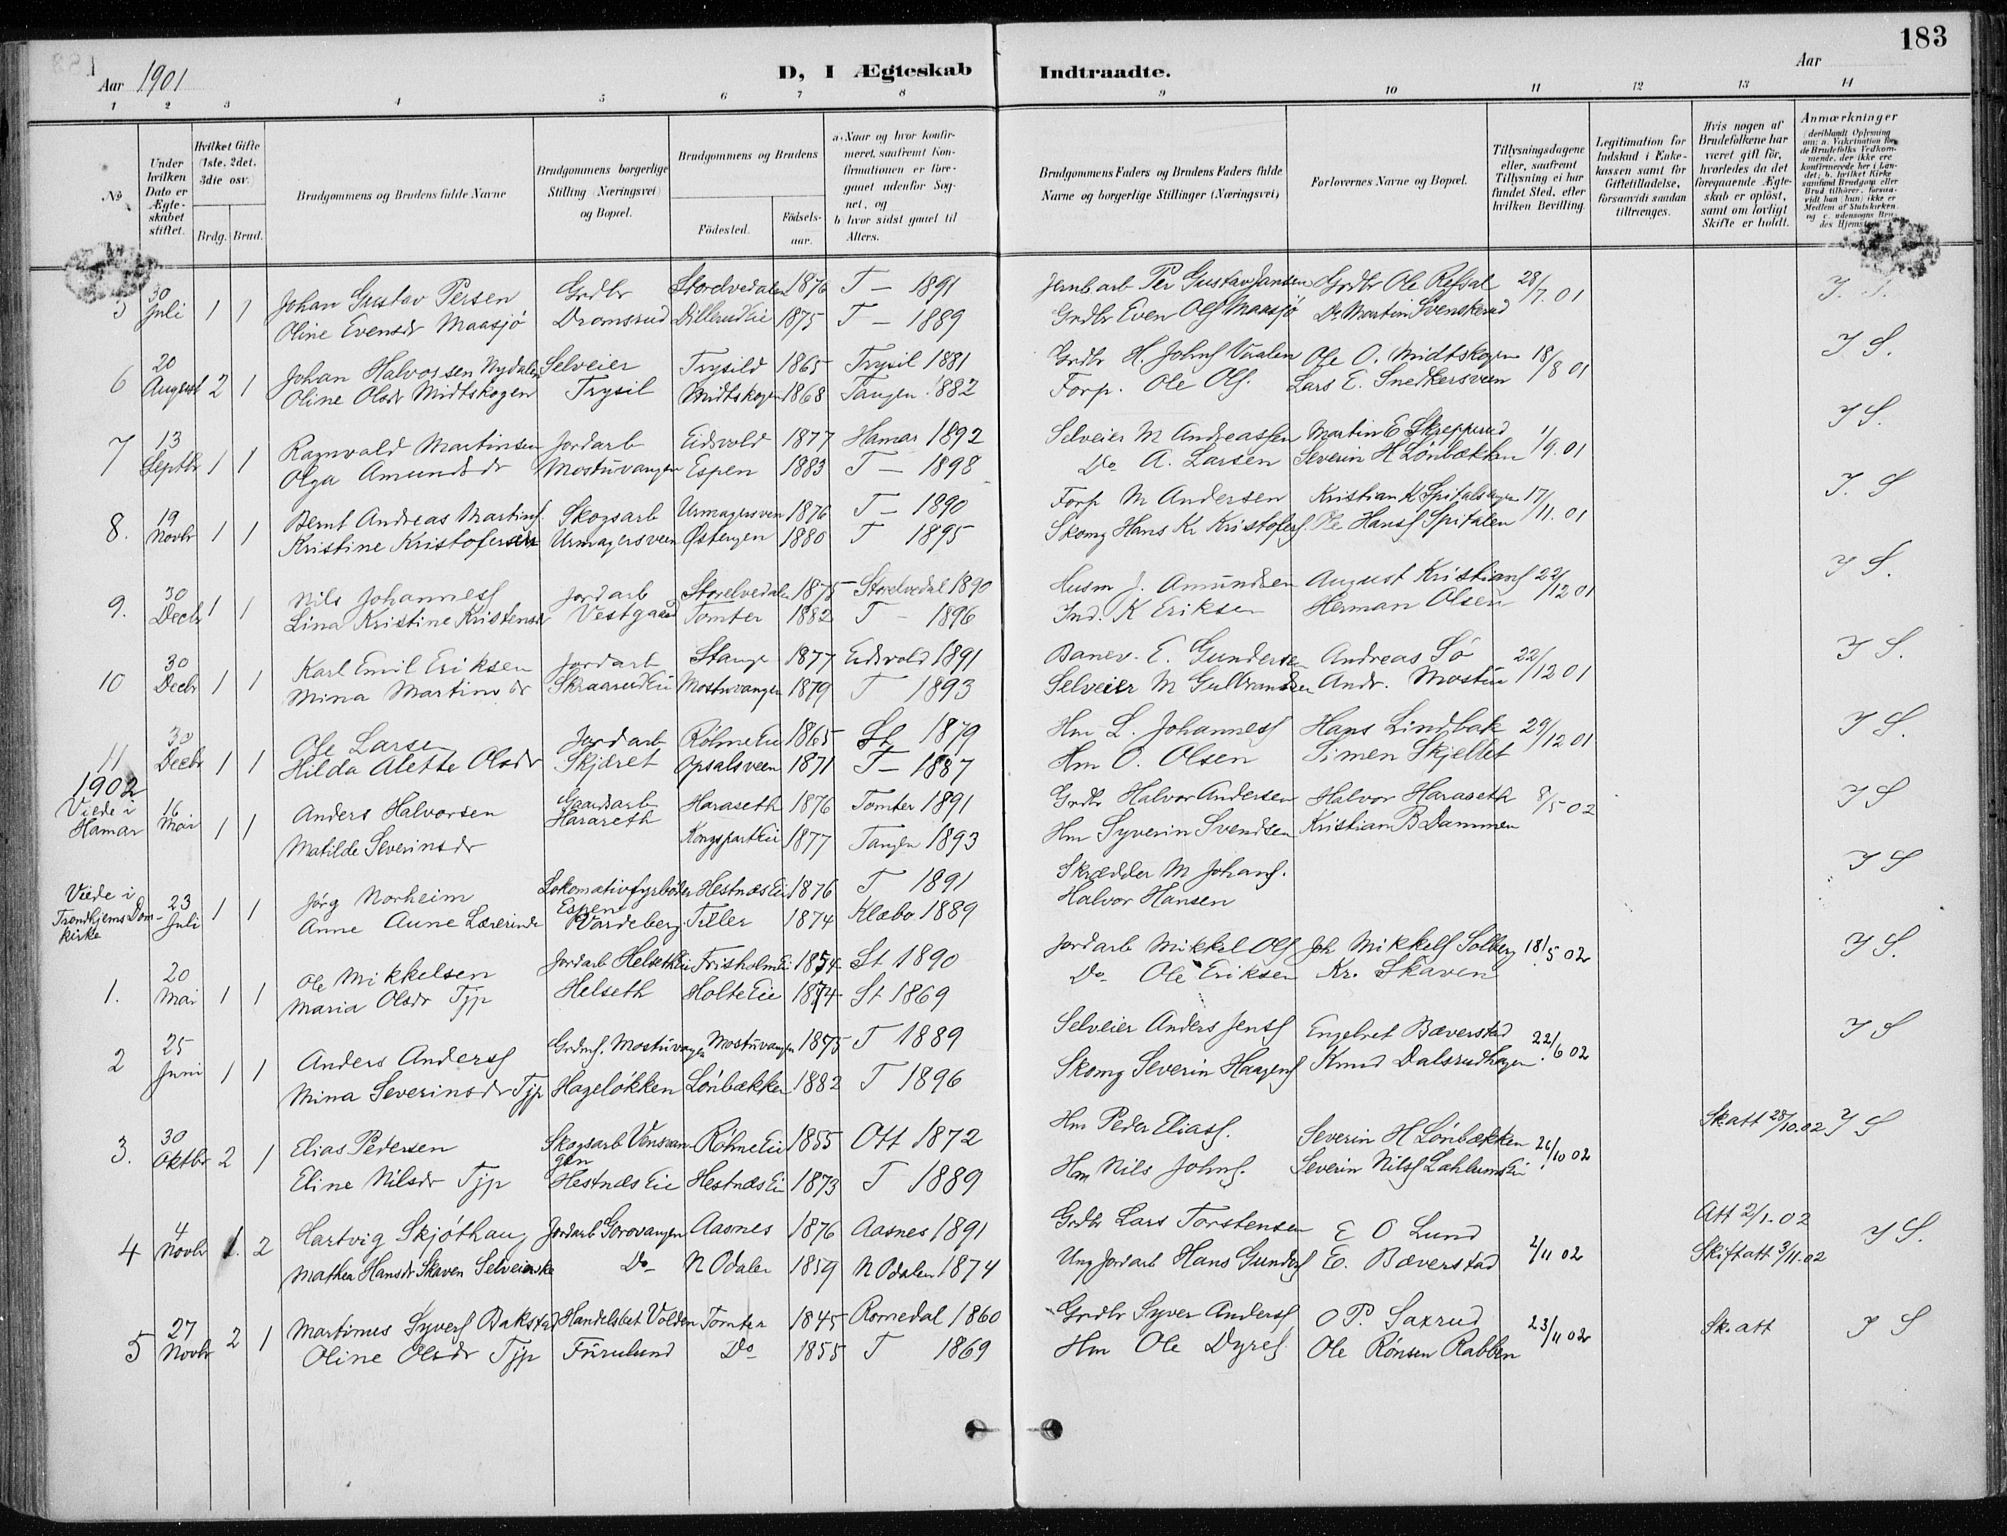 183
Aar 1901
D, I Ægteskab Indtraadte.
Aar
1 2 3 4 5 6 7 8 9 10 11 12 13 14
No
Under hvilken Dato er Ægteskabet stiftet.
Hvilket Gifte (1ste, 2det, 3die osv.)
Brdg. Brud.
Brudgommens og Brudens fulde Navne
Brudgommens borgerlige Stilling (Næringsvei) og Bopæl.
Brudgommens og Brudens
Fødested.
Fødsels-aar.
a. Naar og hvor konfirmeret, saafremt Konfirmationen er foregaaet udenfor Sognet, og
b) hvor sidst gaaet til Alters.
Brudgommens Faders og Brudens Faders fulde Navne og borgerlige Stillinger (Næringsvei)
Forlovernes Navne og Bopæl.
Tillysningsdagene eller, saafremt Tillysning ei har fundet Sted, efter hvilken Bevilling.
Legitimation for Indskud i Enkekassen samt for Giftetilladelse, forsaavidt saadan tiltrænges.
Hvis nogen af Brudefolkene har været gift før, hvorledes da det foregaaende Ægteskab er opløst, samt om lovligt Skifte er holdt.
Anmærkninger
5 30 Juli 1 1 Johan Gustav Persen Grdbr Storelvedalen 1876 T — 1891 Jernbarb Per Gustav Jansen Grdbr Ole Refsal 28/7.01
Oline Evensdr Maasjø Dromsrud Dillerud Eie 1875 T — 1889 Grdbr Even Ols Maasjø Do Martin Svenskerud
6 20 August 2 1 Johan Halvorsen Nydalen Selveier Trysild 1865 Trysil 1881 Grdbr H. Johns Vaalen Ole O. Midtskogen 18/8 01 I S.
Oline Olsdr Midtskogen Trysil Midtskogen 1868 Tangen 1882 Forp. Ole Ols. Lars E. Snedkersveen
7 13 Septbr 1 1 Ragnvald Martinsen Jordarb Eidsvold 1877 Hamar 1892 Selveier M Andreassen Martin E Skrepperud 1/9.01 I S.
Olga Amundsdr Mostuvangen Espen 1883 T — 1898 Do A. Larsen Severin H Lønbækken
8. 19 Novbr 1 1 Bernt Andreas Martins. Skogsarb Urmagersveen 1876 T — 1890 Forp M Andersen Kristian K Spitalshagen 17/11.01 I. S
Kristine Kristofersdr Urmagersveen Østengen 1880 T 1895 Skomg Hans Kr Kristofers. Ole Hans Spitalen
9. 30 Decbr 1 1 Nils Johannes Jordarb Storelvedalen 1875 Storelvedal 1890 Husm J. Amundsen August Kristians 22/12 01 I S.
Lina Kristine Kristensdr Vestgaard Tomter 1882 T - 1896 Ind. K Eriksen Herman Olsen
10 30 Decbr 1 1 Karl Emil Eriksen Jordarb Stange 1877 Eidsvold 1891 Banev. E. Gundersen Andreas Sø 22/12 01 I S.
Mina Martinsdr Skraarud Eie Mostuvangen 1879 T 1893 Selveier M Gulbrandsen Andr. Mostue
11 30 Decbr 1 1 Ole Larsen Jordarb Røhne Eie 1865 St 1879 Hm L. Johannes Hans Lindbak 29/12 01 I S.
Hilda Alette Olsdr Skjæret Opsalsveen 1871 T — 1887 Hm O. Olsen Simen Skjellet
1902
Viede i Hamar 16 Mai 1 1 Anders Halvorsen Gaardsarb Haraseth Haraseth 1876 Tomter 1891 Grdbr Halvor Andersen Halvor Haraseth 8/5 02 I S
Matilde Severinsdr Kongsparteie 1877 Tangen 1893 Hm Syverin Svendsen Kristian B Dammen
Viede i Trondhjems Domkirke 23 Juli 1 1 Jørg Norheim Lokomotivfyrbøder Espen Hestnæs Eie 1876 T 1891 Skrædder M Johans. I S
Anne Aune Lærerinde Vardeberg Tiller 1874 Klæbo 1889 Halvor Hansen
1. 20 Mai 1 1 Ole Mikkelsen Jordarb Helseth Eie Frisholm Eie 1874 St 1890 Jordarb Mikkel Ols Joh Mikkels Solberg 18/5 02 I S.
Maria Olsdr Tjp Helseth Holte Eie 1874 St 1869 Do Ole Eriksen Kr. Skaven
2 25 Juni 1 1 Anders Anders Grdms. Mostuvangen Mostuvangen 1875 T 1889 Selveier Anders Jens Engelbret Bæverstad 22/6 02 I S
Mina Severinsdr Tjp Hageløkken Lønbækken 1882 T 1896 Skomg Severin Haagens Knud Dalsrudhagen
3. 30 Oktbr 2 1 Elias Pedersen Skogsarb Vensvangen Røhne Eie 1855 Ott 1872 Hm Peder Elias. Severin H Lønbækken 26/10 02 Skatt 28/10.02 I S
Eline Nilsdr Tjp Hestnæs Eie Hestnæs Eie 1873 T 1889 Hm Nils Johns. Severin Nils Lahlums Eie
4 4 Novbr 1. 2 Hartvig Skjøthaug Jordarb Gorovangen Aasnes 1876 Aasnes 1891 Grdbr Lars Torstensen E O Lund 2/11 02 Att 2/1.02 I S.
Mathea Hansdr Skaven Selveierske Do N Odalen 1859 N Odalen 1874 Ung Jordarb Hans Gunders E. Bæverstad Skiftatt 3/11.02
5 27 Novbr 2 1 Martinus Syvers Bakstad Handelsbet Volden Tomter 1845 Romedal 1860 Grdbr Syver Anders O P. Saxrud 23/11 02 Sk.att I S
Oline Olsdr Tjp Furulund Do 1855 T 1869 Hm Ole Dyres. Ole Rønsen Rabben